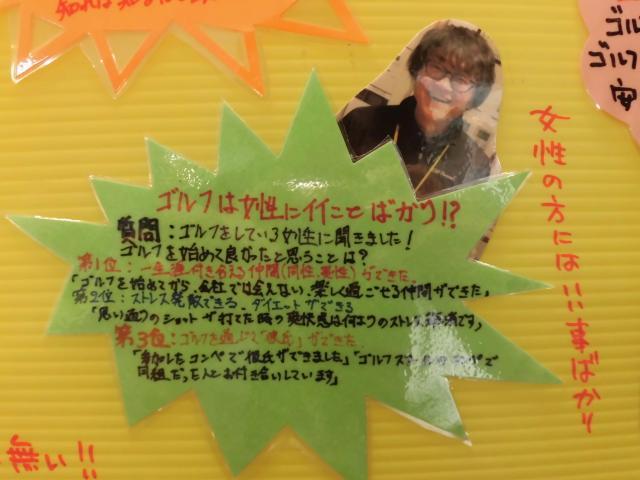 ゴル
ゴルフ
安
ゴルフは女性にイイことばかり!?
質問:ゴルフをしている女性に聞きました!
ゴルフを始めて良かったと思うことは?
第1位:一生涯付き合える仲間(同性、異性)ができた
「ゴルフを始めてから、会社では会えない、楽しく過ごせる仲間ができた」
第2位:ストレス発散できる、ダイエットができる
「思い通りのショットが打てた時の爽快感は何よりのストレス
です」
第3位:ゴルフを通じて「彼氏」ができた
「参加したコンペで彼氏ができました」「ゴルフス
で
同組だった人とお付き合いしています」
女性の方にはいい事ばかり
無い!!